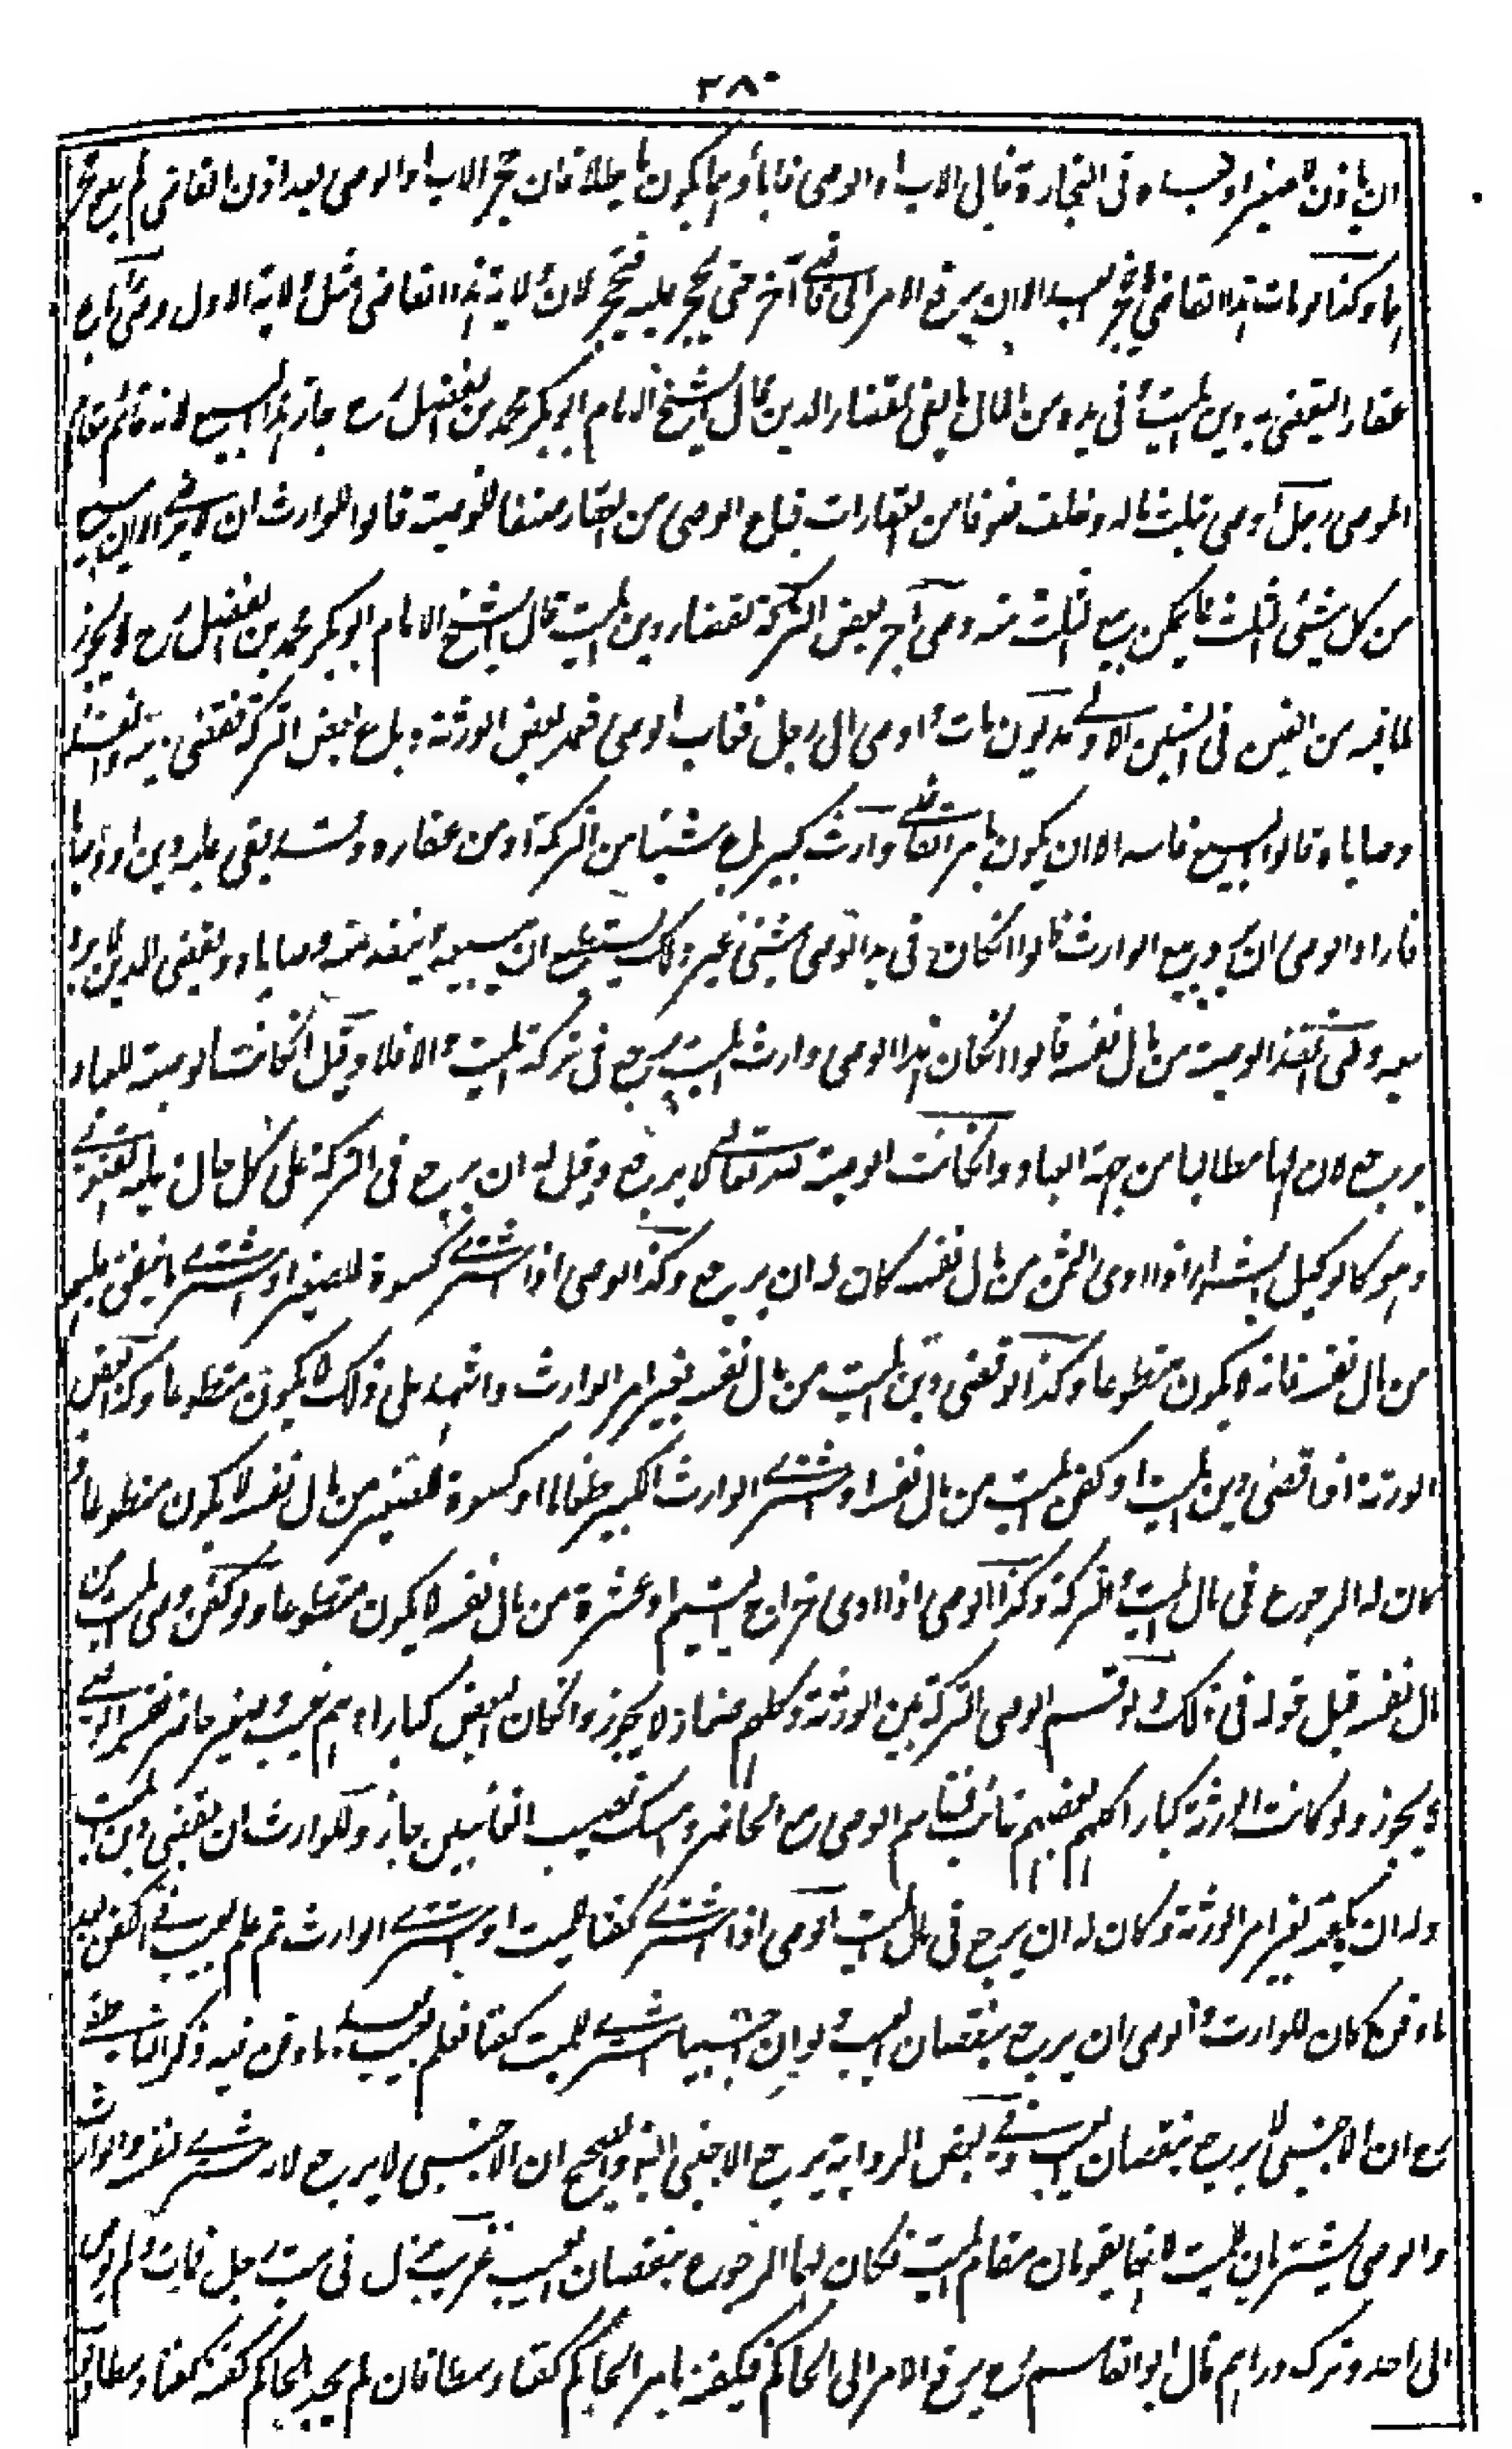 ٣٨٠
ان ياذن للصغير او فى التجارة فابى الاب او الوصى فاباؤهما يكون باطلا فان حجر الاب او الوصى بعد اذن القاضى لم يصح حجر
هما وكذا لو مات هذا القاضى لا الا ان يرفع الامر الى قاض آخر حتى يحجر عليه فيحجر لان ولاية هذا القاضى مثل ولاية الاول وصى باع
عقارا ليقضى به دين الميت وفى يده من المال ما يفى لقضاء الدين قال الشيخ الامام ابو بكر محمد بن الفضل رح جاز هذا البيع لانه قائم مقام
الموصى رجل اوصى بثلث ماله وخلف صنوفا من العقارات فباع الوصى من العقار صنفا للوصية قالوا للوارث ان لا يرضى الا ان يبيع
من كل شئ الثلث مما يمكن بيع الثلث منه وصى آجر بعض التركة لقضاء دين الميت قال الشيخ الامام ابو بكر محمد بن الفضل رح لا يجوز
لما فيه من الغبن فى مديون مات واوصى الى رجل فغاب الوصى فعمد بعض الورثة وباع بعض التركة فقضى دينه وانفذ
وصاياه قالوا البيع فاسد الا ان يكون بامر القاضى وارث كبير باع شيئا من التركة او من عقاره وقد بقى عليه دين او وصايا
فاراد الوصى ان يرد بيع الوارث قالوا ان كان فى يد الوصى شئ غير ذلك يستطيع ان يبيعه وينفذ منه وصاياه ويقضى الدين لا يرد
بيعه وصى انفذ الوصية من مال نفسه قالوا ان كان هذا الوصى وارث الميت يرجع فى تركة الميت والا فلا وقيل ان كانت الوصية للعباد
يرجع لان لها مطالبا من جهة العباد وان كانت الوصية لله تعالى لا يرجع وقيل له ان يرجع فى التركة على كل حال وعليه الفتوى
وهو كالوكيل بالشراء اذا ادى الثمن من مال نفسه كان له ان يرجع وكذا الوصى اذا اشترى كسوة للصغير او اشترى ما ينفق عليهم
من مال نفسه فانه لا يكون متطوعا وكذا لو قضى دين الميت من مال نفسه بغير امر الوارث واشهد على ذلك لا يكون متطوعا وكذا بعض
الورثة اذا قضى دين الميت او كفن الميت من مال نفسه او اشترى الوارث الكبير طعاما او كسوة للصغير من مال نفسه لا يكون متطوعا و
كان له الرجوع فى مال الميت والتركة وكذا الوصى اذا ادى خراج اليتيم او عشره من مال نفسه لا يكون متطوعا ولو كفن وصى الميت من
مال نفسه قبل قوله فى ذلك ولو قسم الوصى التركة بين الورثة وكلهم صغار لا يجوز وان كان البعض كبارا وهم غيب وصغير حاضر
لا يجوز ولو كانت الورثة كبارا كلهم بعضهم غائب فقاسم الوصى مع الحاضر وامسك نصيب الغائبين جاز وللوارث ان يقضى دين الميت
وله ان يكفنه بغير امر الورثة وكان له ان يرجع فى مال الميت الوصى اذا اشترى كفنا للميت او اشترى الوارث ثم علم بعيب فى الكفن بعد
ما دفن كان للوارث والوصى ان يرجع بنقصان العيب ولو ان اجنبيا اشترى للميت كفنا فعلم بعيب بعد ما دفن فيه ذكر الناطفى
رح ان الاجنبى لا يرجع بنقصان العيب وفى بعض الرواية يرجع الاجنبى ايضا والصحيح ان الاجنبى لا يرجع لانه اشترى لنفسه والوارث
والوصى يشتريان للميت لانهما يقومان مقام الميت فكان لهما الرجوع بنقصان العيب غريب نزل فى بيت رجل فمات ولم يوص
الى احد وترك دراهم قال ابو القاسم رح يرفع الامر الى الحاكم فيكفنه بامر الحاكم كفنا وسطا فان لم يجد الحاكم كفنه كفنا وسطا